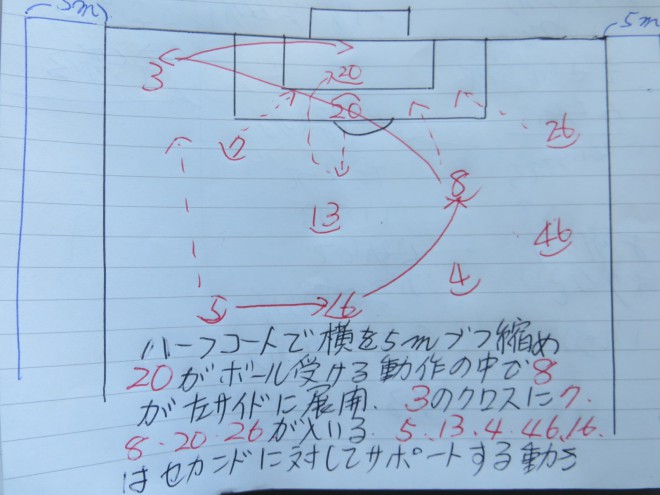 5m
5m
3
20
20
7
26
8
13
46
4
5
16
ハーフコートで横を5mづつ縮め
20がボール受ける動作の中で8
が左サイドに展開、3のクロスに7.
8.20.26が入いる 5.13.4.46.16.
はセカンドに対してサポートする動き